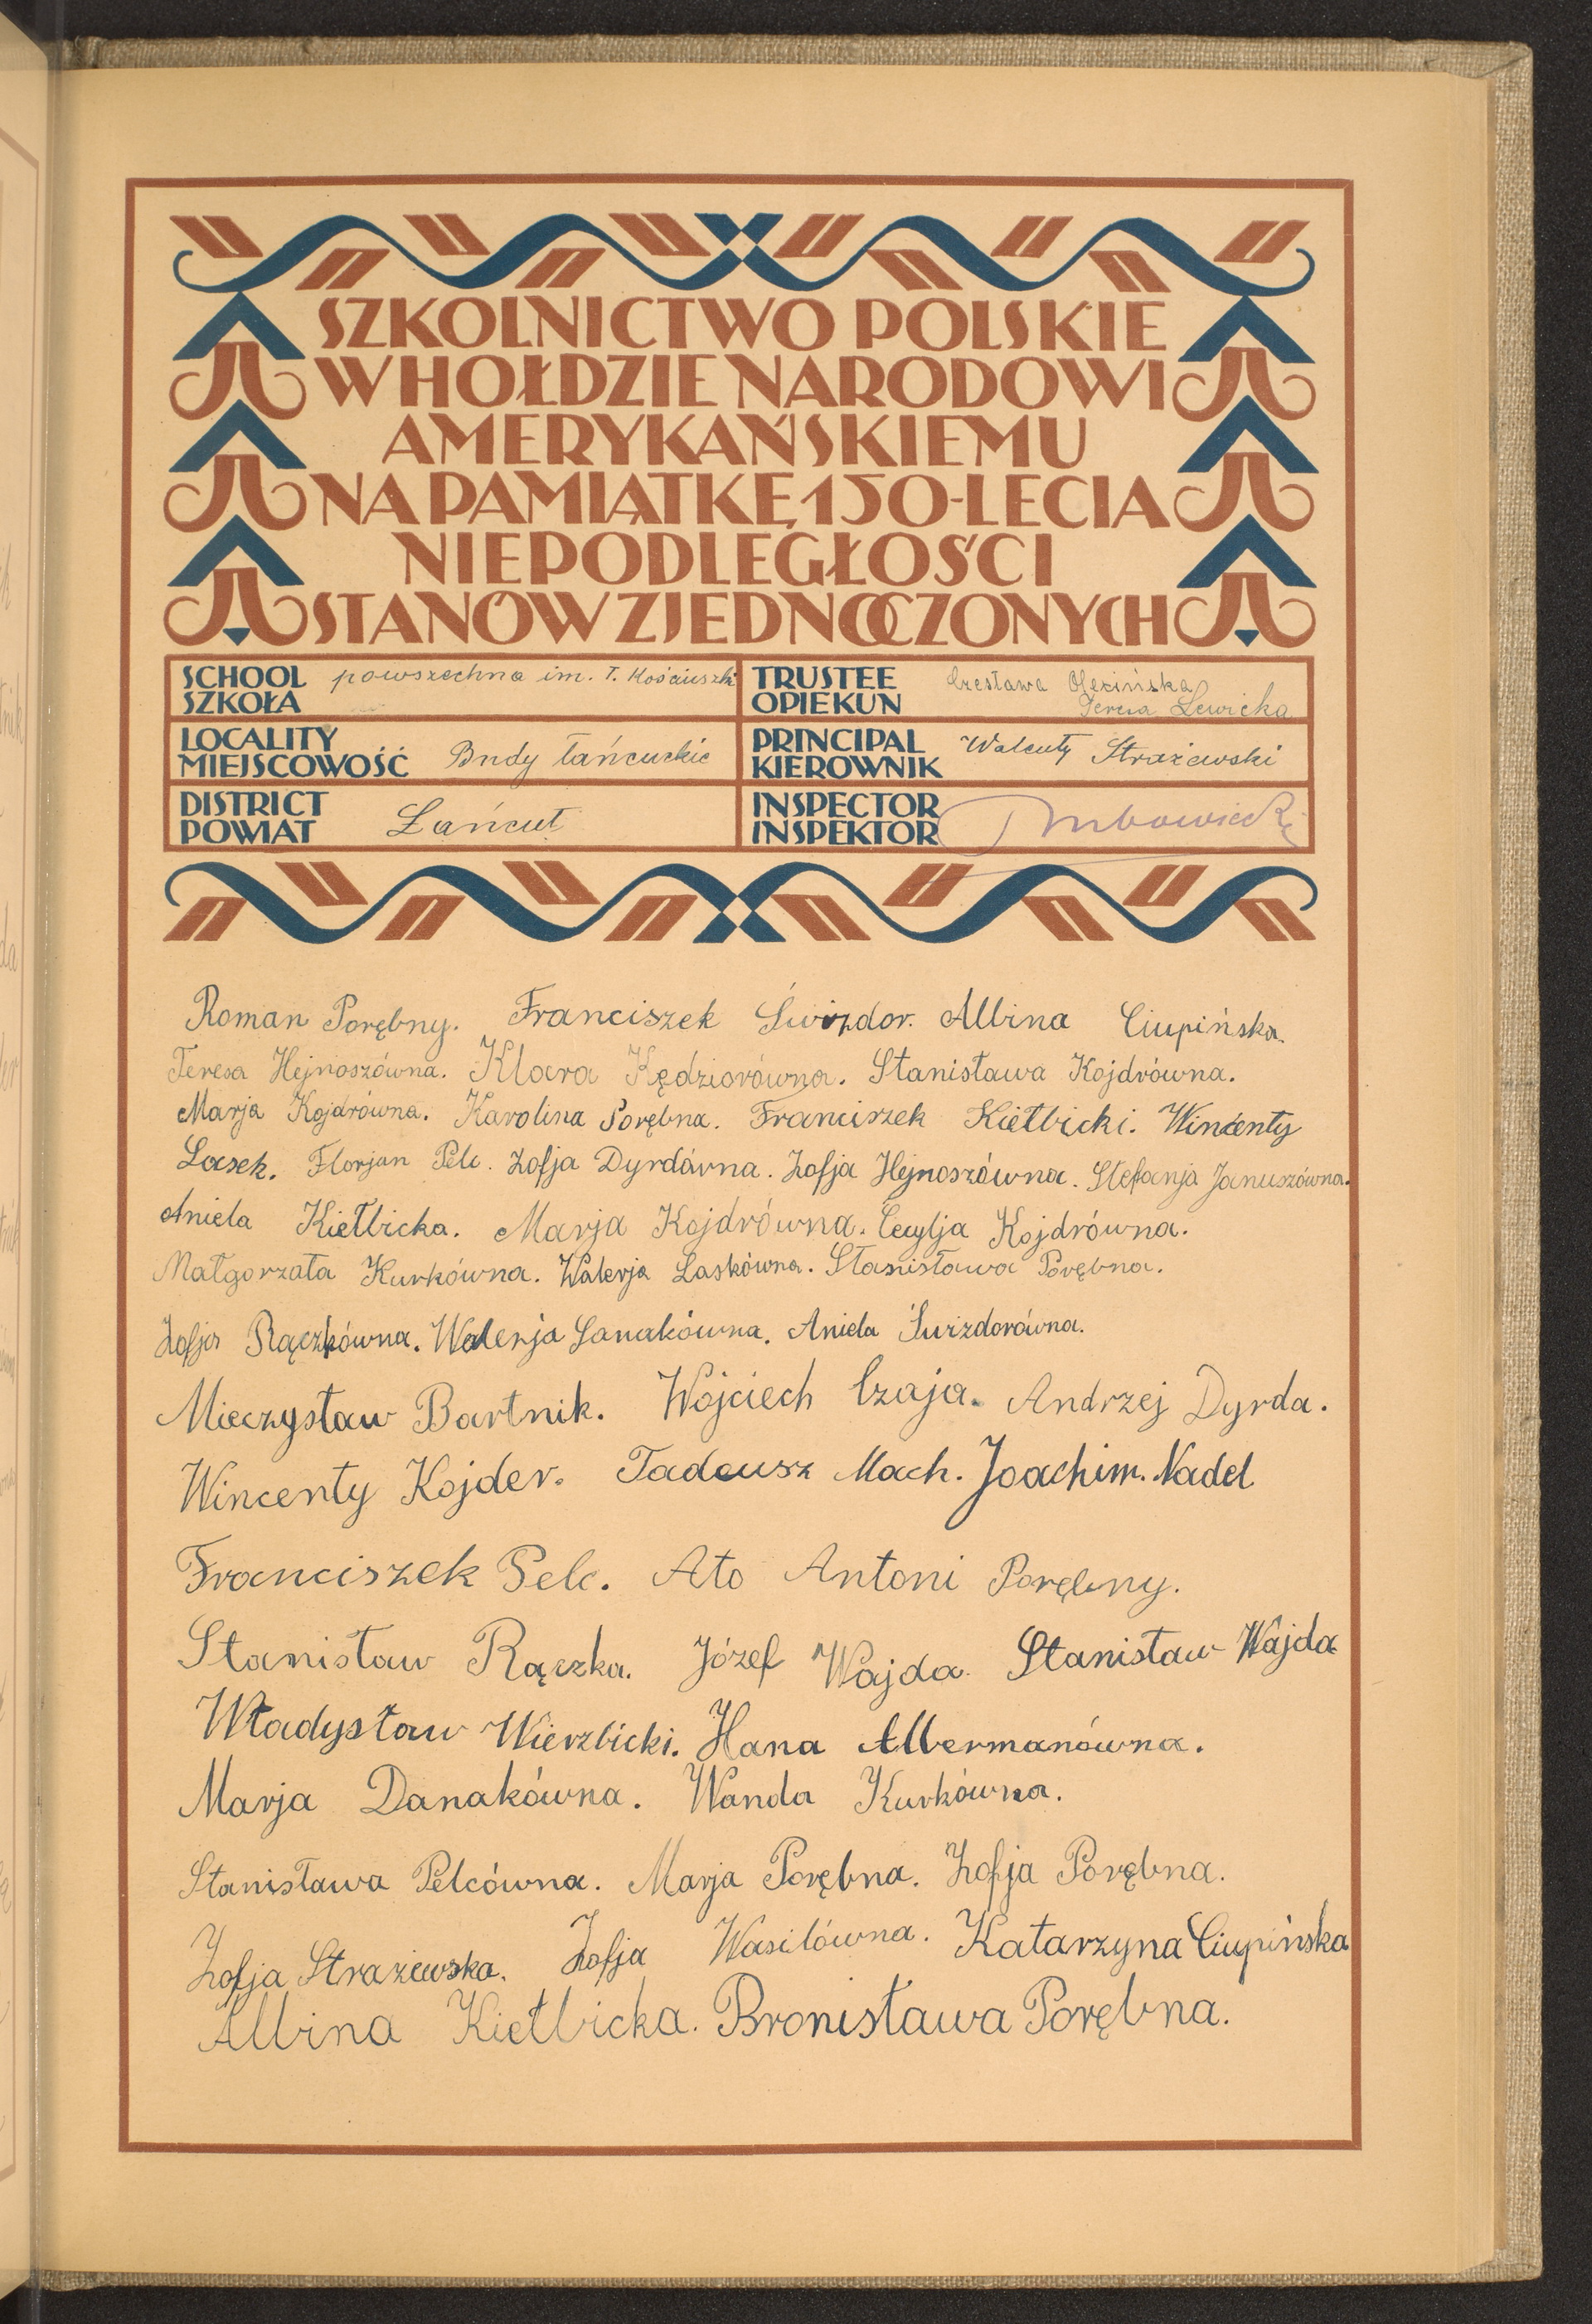 SZKOLNICTWO POLSKIE
W HOŁDZIE NARODOWI
AMERYKAŃSKIEMU
NA PAMIĄTKĘ 150-LECIA
NIEPODLEGŁOŚCI
STANÓW ZJEDNOCZONYCH
SCHOOL
SZKOŁA
powszechna im. T. Kościuszki
TRUSTEE
OPIEKUN
Czesława Olexińska
Teresa Lewicka
LOCALITY
MIEJSCOWOŚĆ
Budy łańcuckie
PRINCIPAL
KIEROWNIK
Walenty Strażewski
DISTRICT
POWIAT
Łańcut
INSPECTOR
INSPEKTOR
Roman Porębny. Franciszek Świzdor. Albina Ciupińska.
Teresa Hejnoszówna. Klara Kędziorówna. Stanisława Kojdrówna.
Marja Kojdrówna. Karolina Porębna. Franciszek Kiełbicki. Wincenty
Lasek. Florjan Pelc. Zofja Dyrdówna. Zofja Hejnoszówna. Stefanja Januszówna.
Aniela Kiełbicka. Marja Kojdrówna. Cecylja Kojdrówna.
Małgorzata Kurkówna. Walerja Laskówna. Stanisława Porębna.
Zofja Rączkówna. Walerja Sanakówna. Aniela Świzdorówna.
Mieczysław Bartnik. Wojciech Czaja. Andrzej Dyrda.
Wincenty Kojder. Tadeusz Mach. Joachim. Nadel
Franciszek Pelc. Ato Antoni Porębny.
Stanisław Rączka. Józef Wajda. Stanisław Wajda
Władysław Wierzbicki. Hana Albermanówna.
Marja Danakówna. Wanda Kurkówna.
Stanisława Pelcówna. Marja Porębna. Zofja Porębna.
Zofja Strażewska. Zofja Wasilówna. Katarzyna Ciupińska
Albina Kiełbicka. Bronisława Porębna.